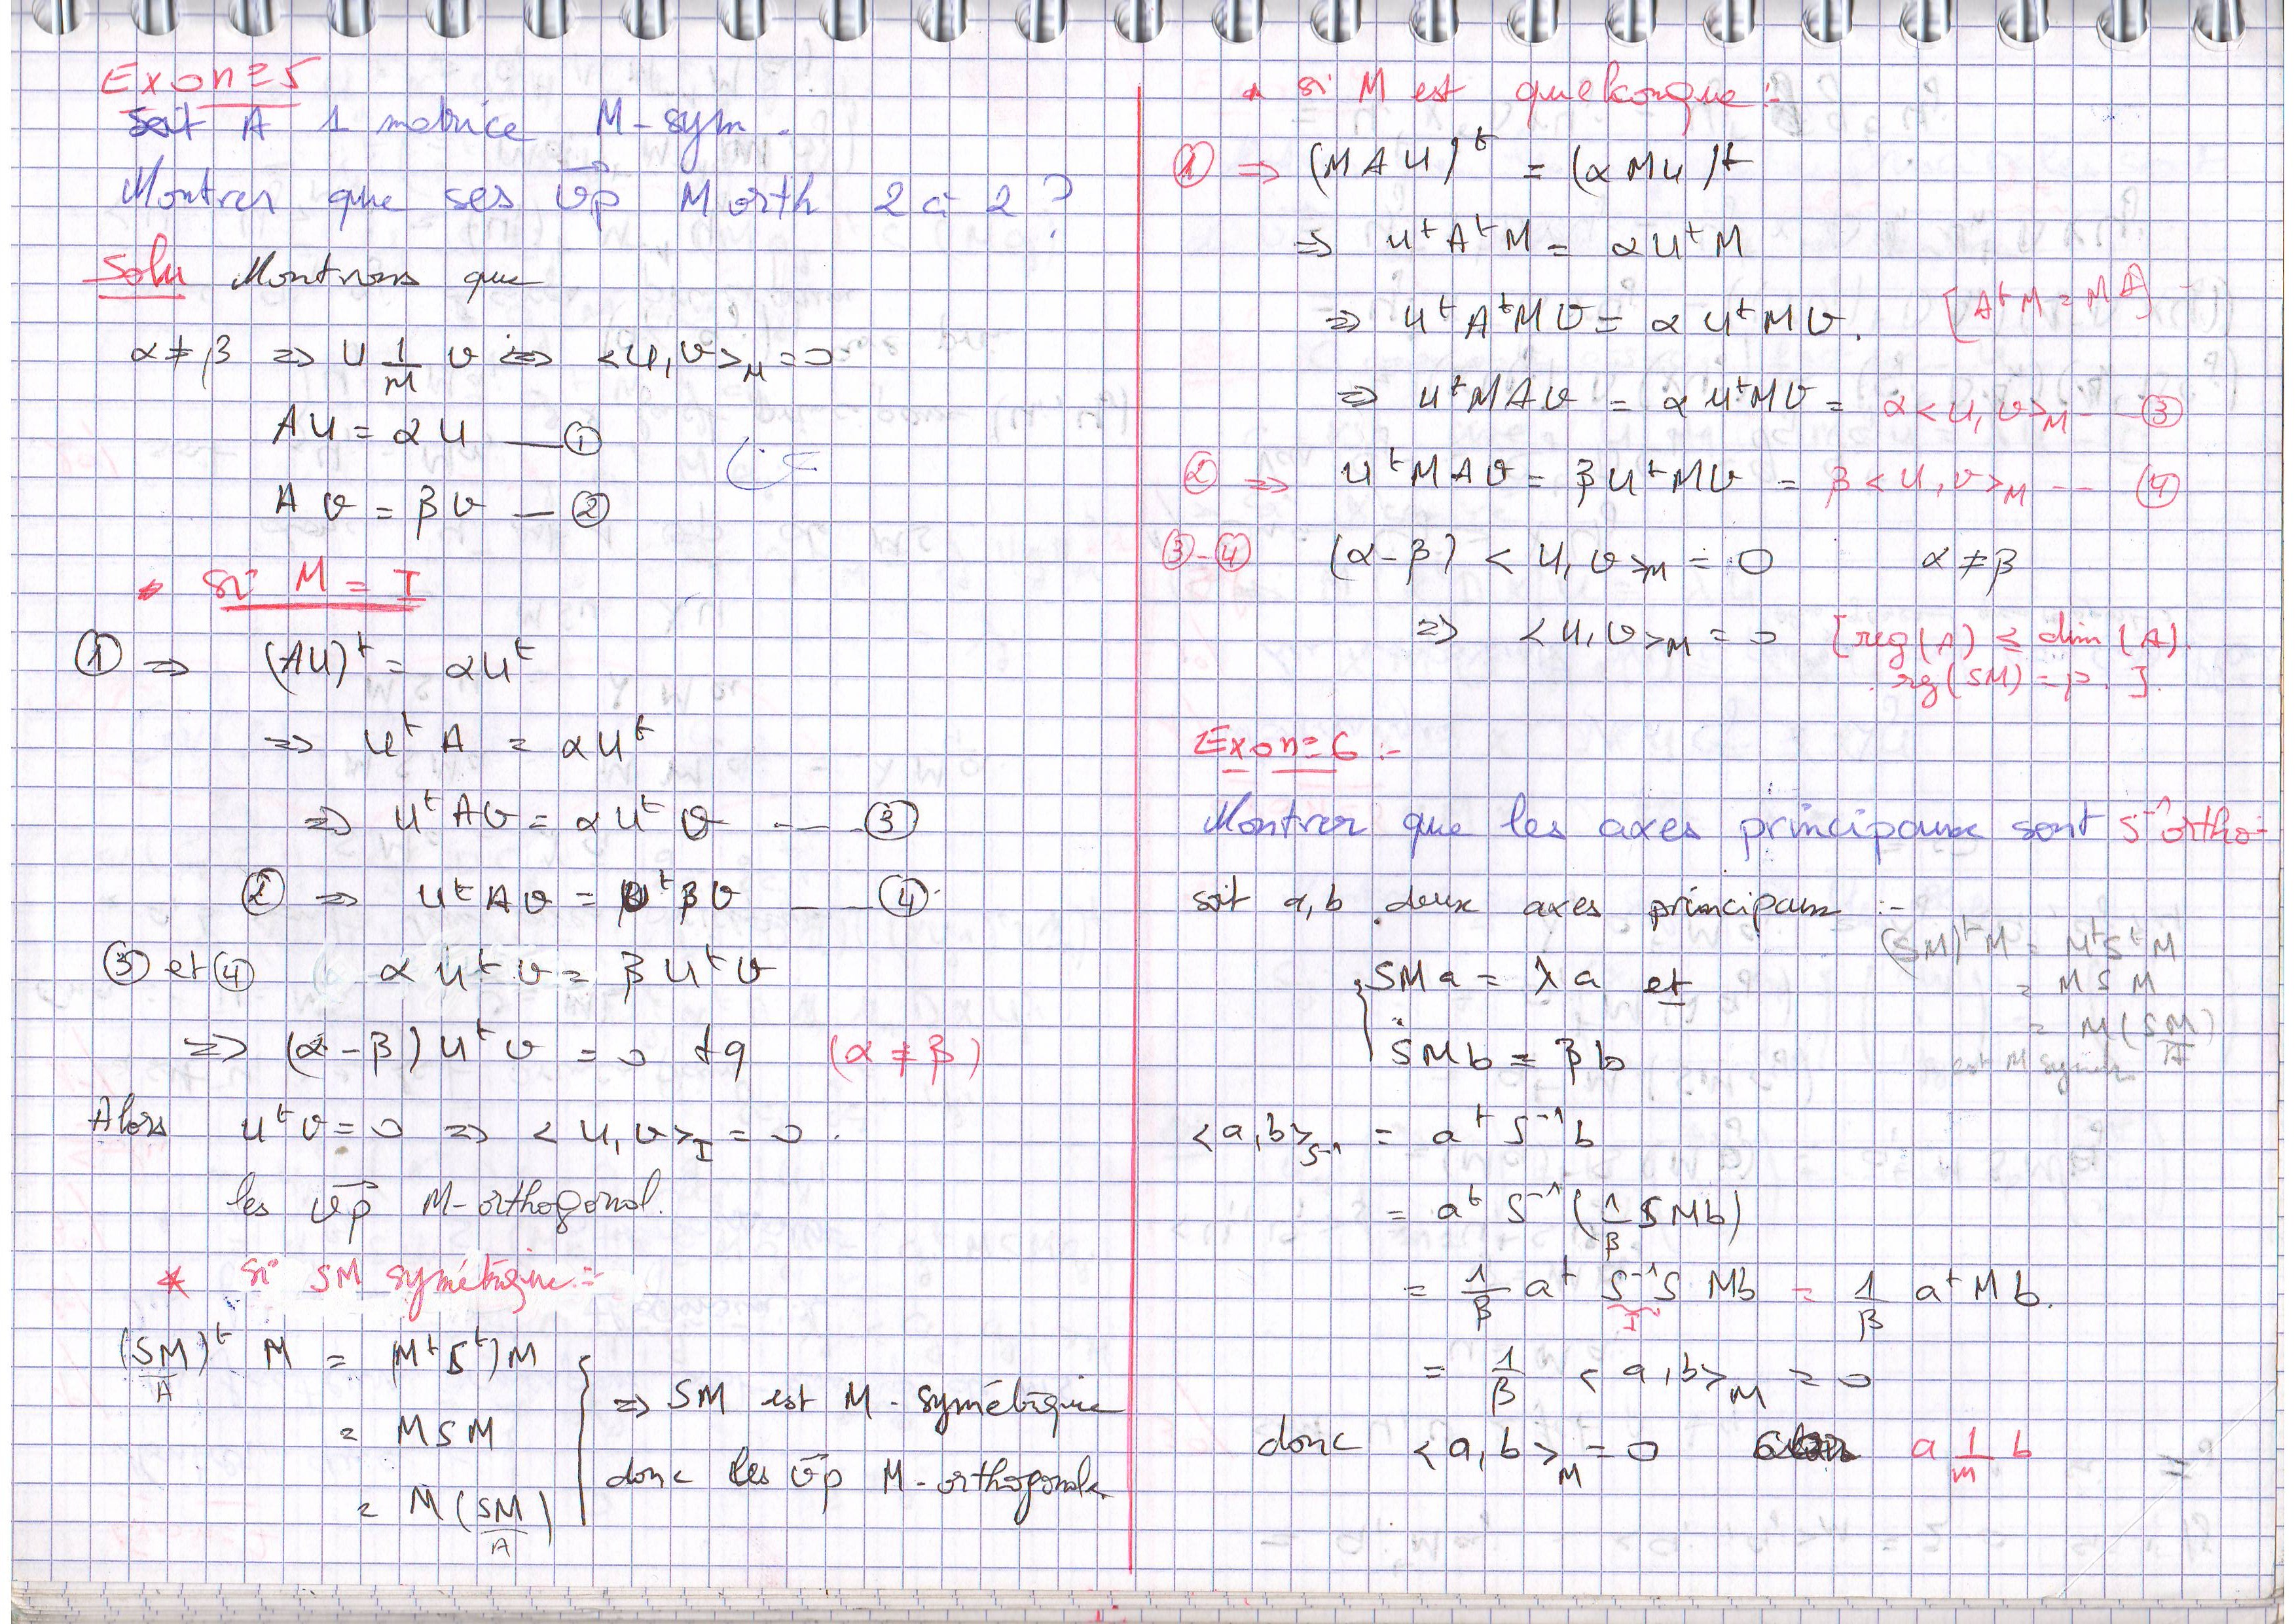 Exo n=5
Soit A 1 matrice M-sym.
Montrer que ses vp M orth 2 à 2 ?
Solu Montrons que
α ≠ β => U ⊥_M v <=> <U, v>_M = 0
AU = αU — ①
Av = βv — ②
* Si M = I
① => (AU)^t = αU^t
=> U^t A = αU^t
=> U^t A v = αU^t v --- ③
② => U^t A v = U^t βv --- ④
③ et ④ αU^t v = βU^t v
=> (α-β) U^t v = 0 tq (α ≠ β)
Alors U^t v = 0 => <U, v>_I = 0.
les vp M-orthogonal.
* Si SM symétrique :-
(SM)^t M = (M^t S^t) M
A
= MSM
= M (SM)
A
=> SM est M-symétrique
donc les vp M-orthogonale
* si M est quelconque :-
① => (MAU)^t = (αMU)^t
=> U^t A^t M = αU^t M
=> U^t A^t M v = αU^t M v. [A^t M = MA]
=> U^t M A v = αU^t M v = α<U, v>_M --- ③
② => U^t M A v = βU^t M v = β<U, v>_M -- ④
③-④ (α-β) <U, v>_M = 0 α ≠ β
=> <U, v>_M = 0 [reg(A) ≤ dim(A).
rg(SM) = p.]
Exo n=6 :-
Montrer que les axes principaux sont S^-1 ortho-
soit a, b deux axes principaux :-
(SM)^t M = M^t S^t M
= M S M
= M (SM)
A
est M symétr
{ SMa = λa et
SMb = βb
<a, b>_S^-1 = a^t S^-1 b
= a^t S^-1 (1/β SMb)
= 1/β a^t S^-1 S Mb = 1/β a^t M b.
I
= 1/β <a, b>_M = 0
donc <a, b>_M = 0 a ⊥_m b